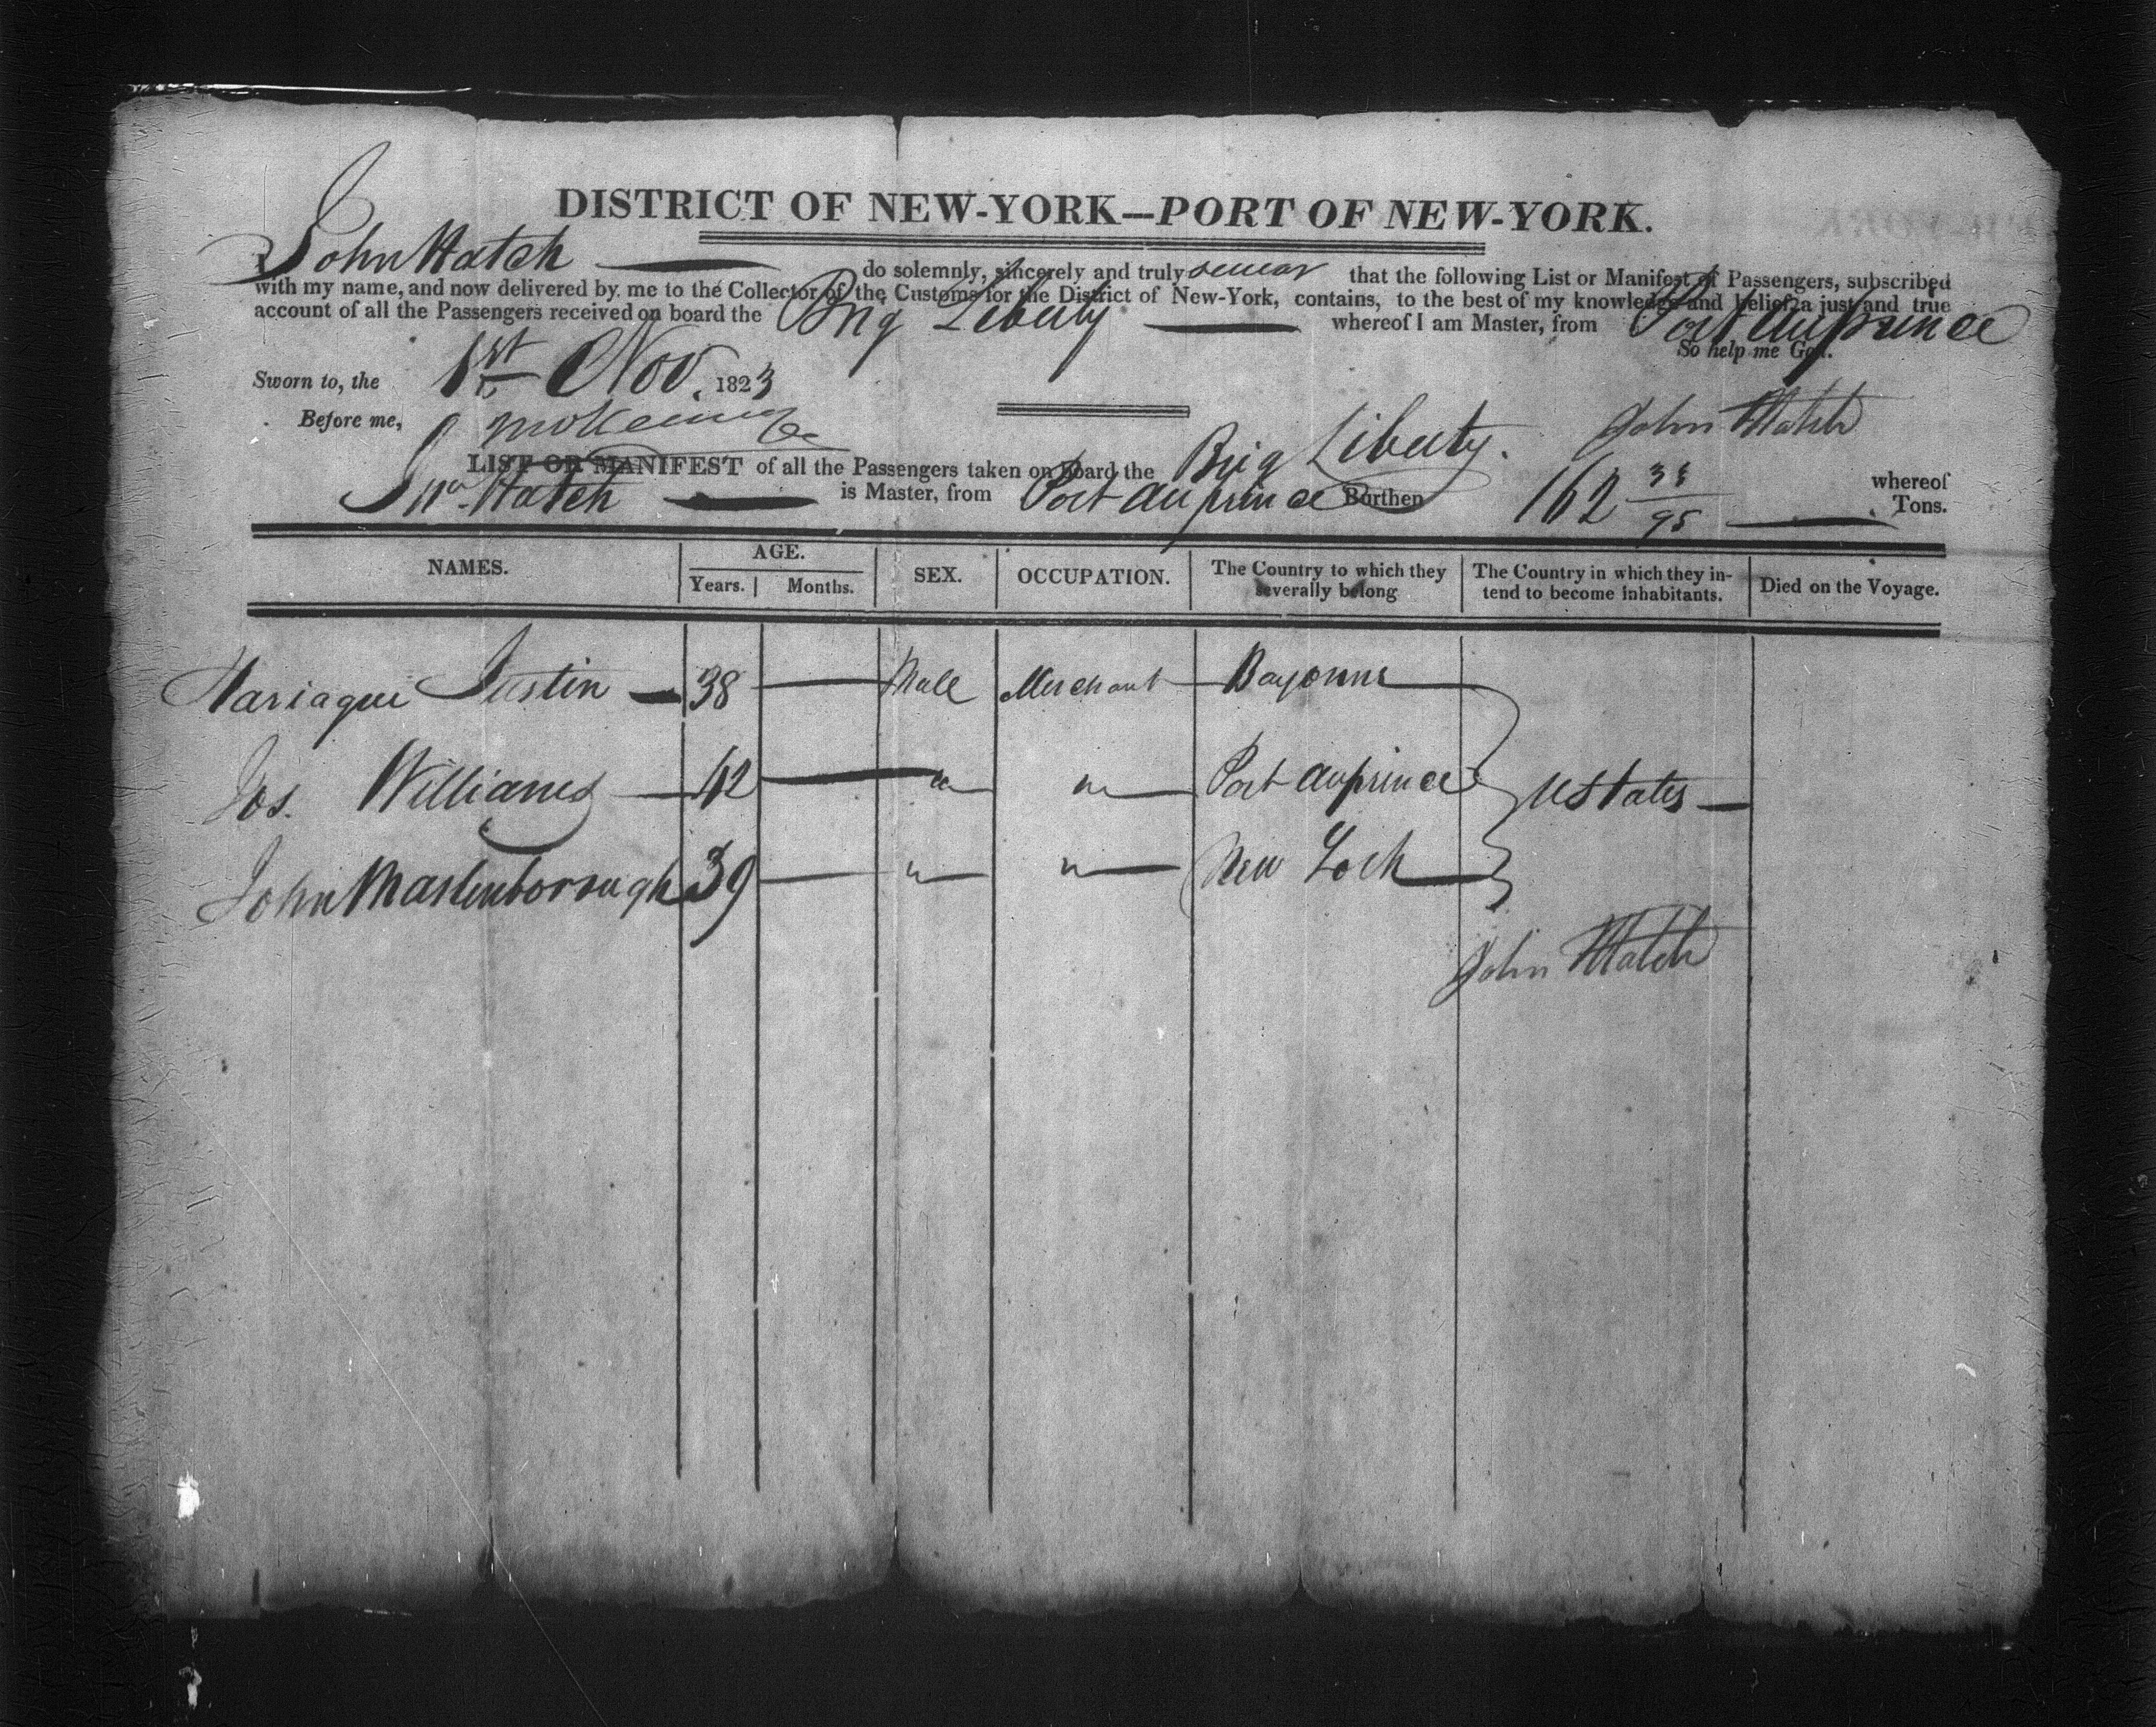 DISTRICT OF NEW-YORK—PORT OF NEW-YORK.
I John Hatch do solemnly, sincerely and truly swear that the following List or Manifest of Passengers, subscribed
with my name, and now delivered by me to the Collector of the Customs for the District of New-York, contains, to the best of my knowledge and belief, a just and true
account of all the Passengers received on board the Brig Liberty whereof I am Master, from Port au prince
So help me God.
Sworn to, the 1st Nov. 1823
Before me, John Hatch
LIST OR MANIFEST of all the Passengers taken on board the Brig Liberty. whereof
Jno. Hatch is Master, from Port au prince Burthen 162 38/95 Tons.
NAMES. AGE. Years. Months. SEX. OCCUPATION. The Country to which they severally belong The Country in which they intend to become inhabitants. Died on the Voyage.
Hariaque Justin 38 Male Merchant Bayonne
Jos. Williams 42 " " Port au prince U States
John Marlenborough 39 " " New York
John Hatch